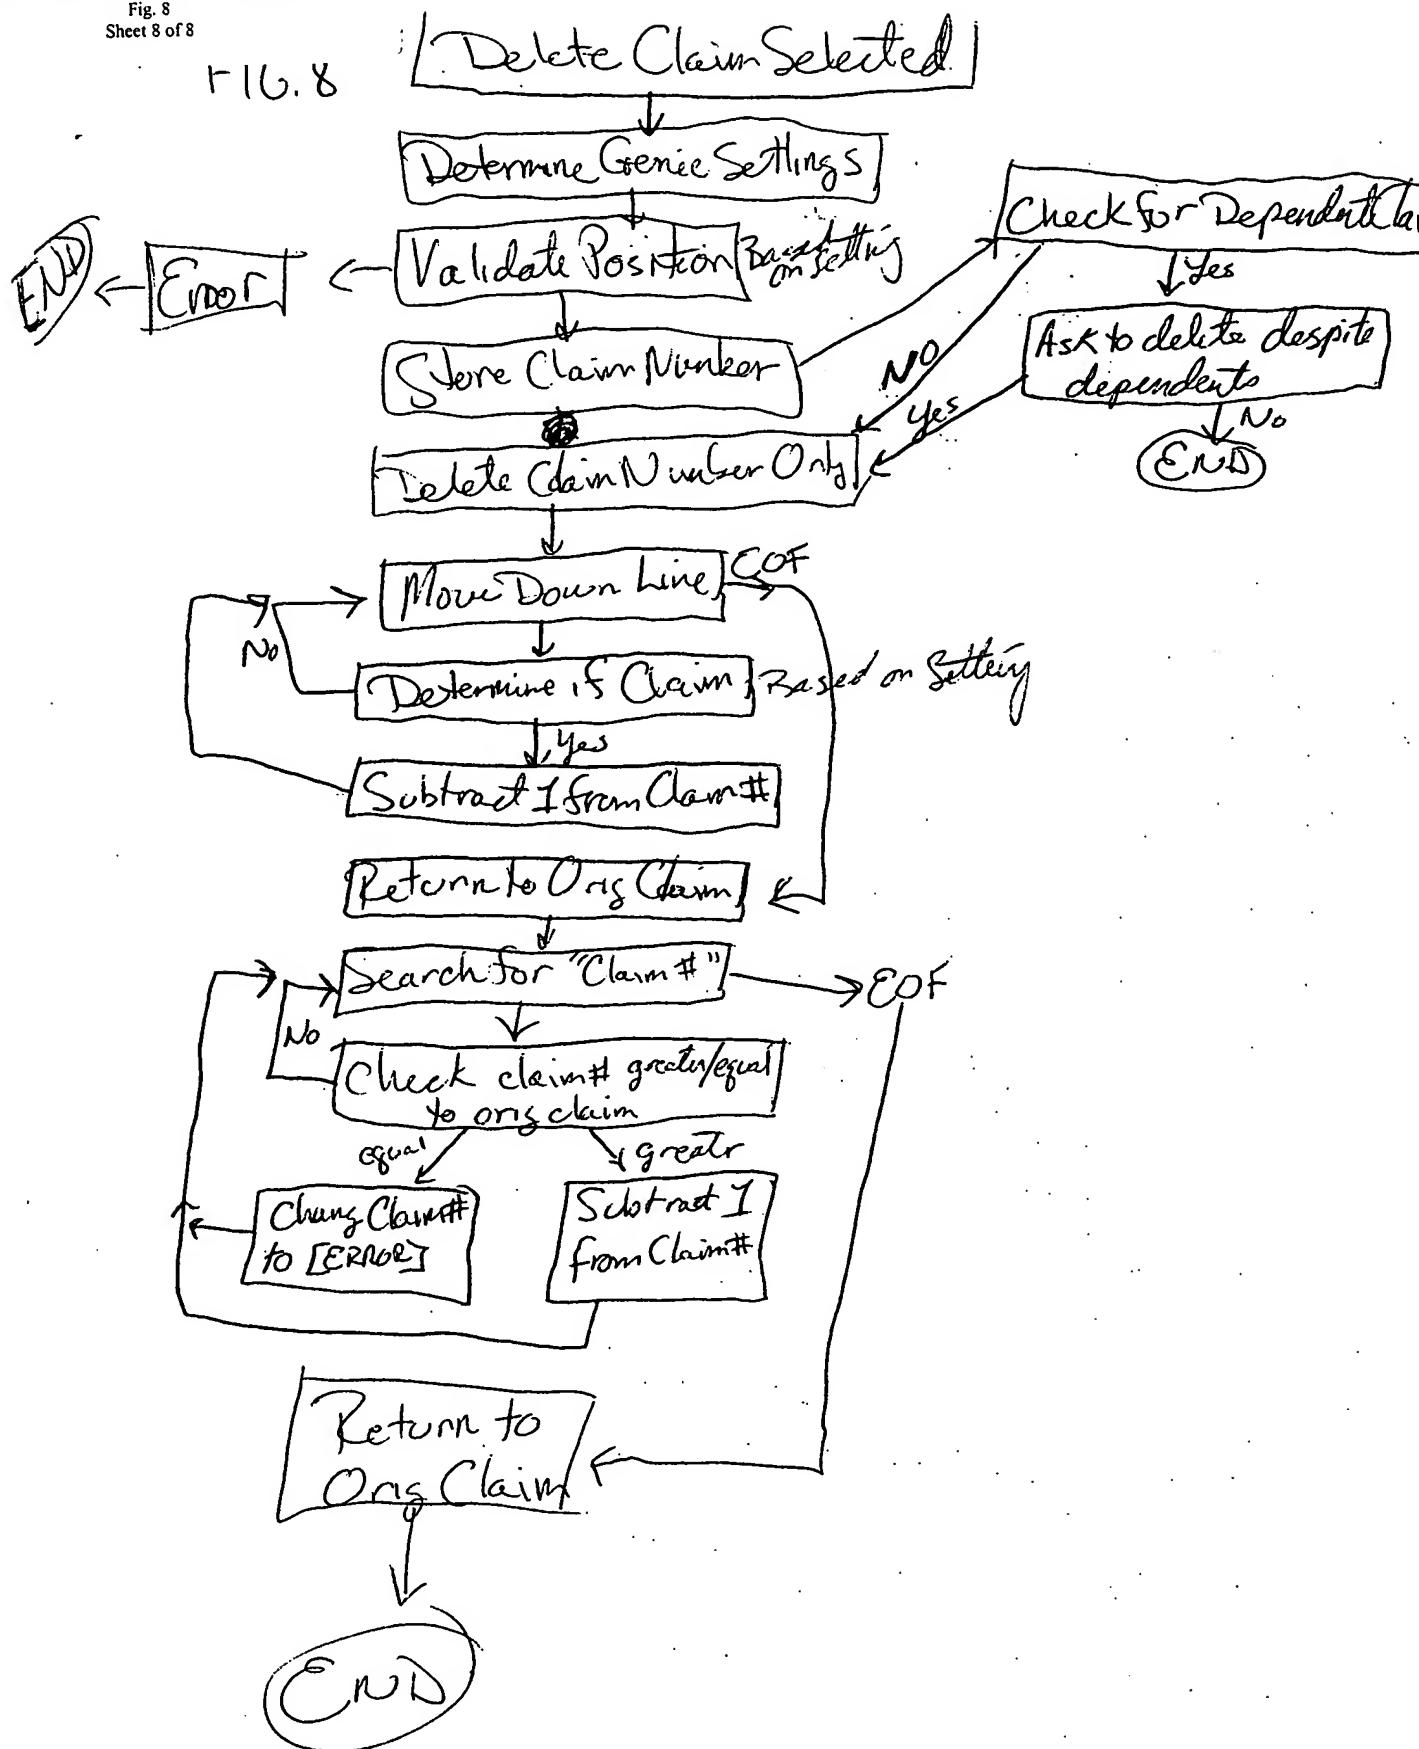 Fig. 8
Sheet 8 of 8
FIG. 8
Delete Claim Selected
Determine Genie Settings
Validate Position
Based
on Setting
Error
END
Store Claim Number
Check for Dependent Clai
Yes
Ask to delete despite
dependents
No
END
NO
Yes
Delete Claim Number Only
Move Down Line
EOF
No
Determine if Claim
Based on Setting
Yes
Subtract 1 from Claim #
Return to Orig Claim
Search for "Claim #"
EOF
No
Check claim # greater/equal
to orig claim
equal
greatr
Chang Claim #
to [ERROR]
Subtract 1
from Claim #
Return to
Orig Claim
END